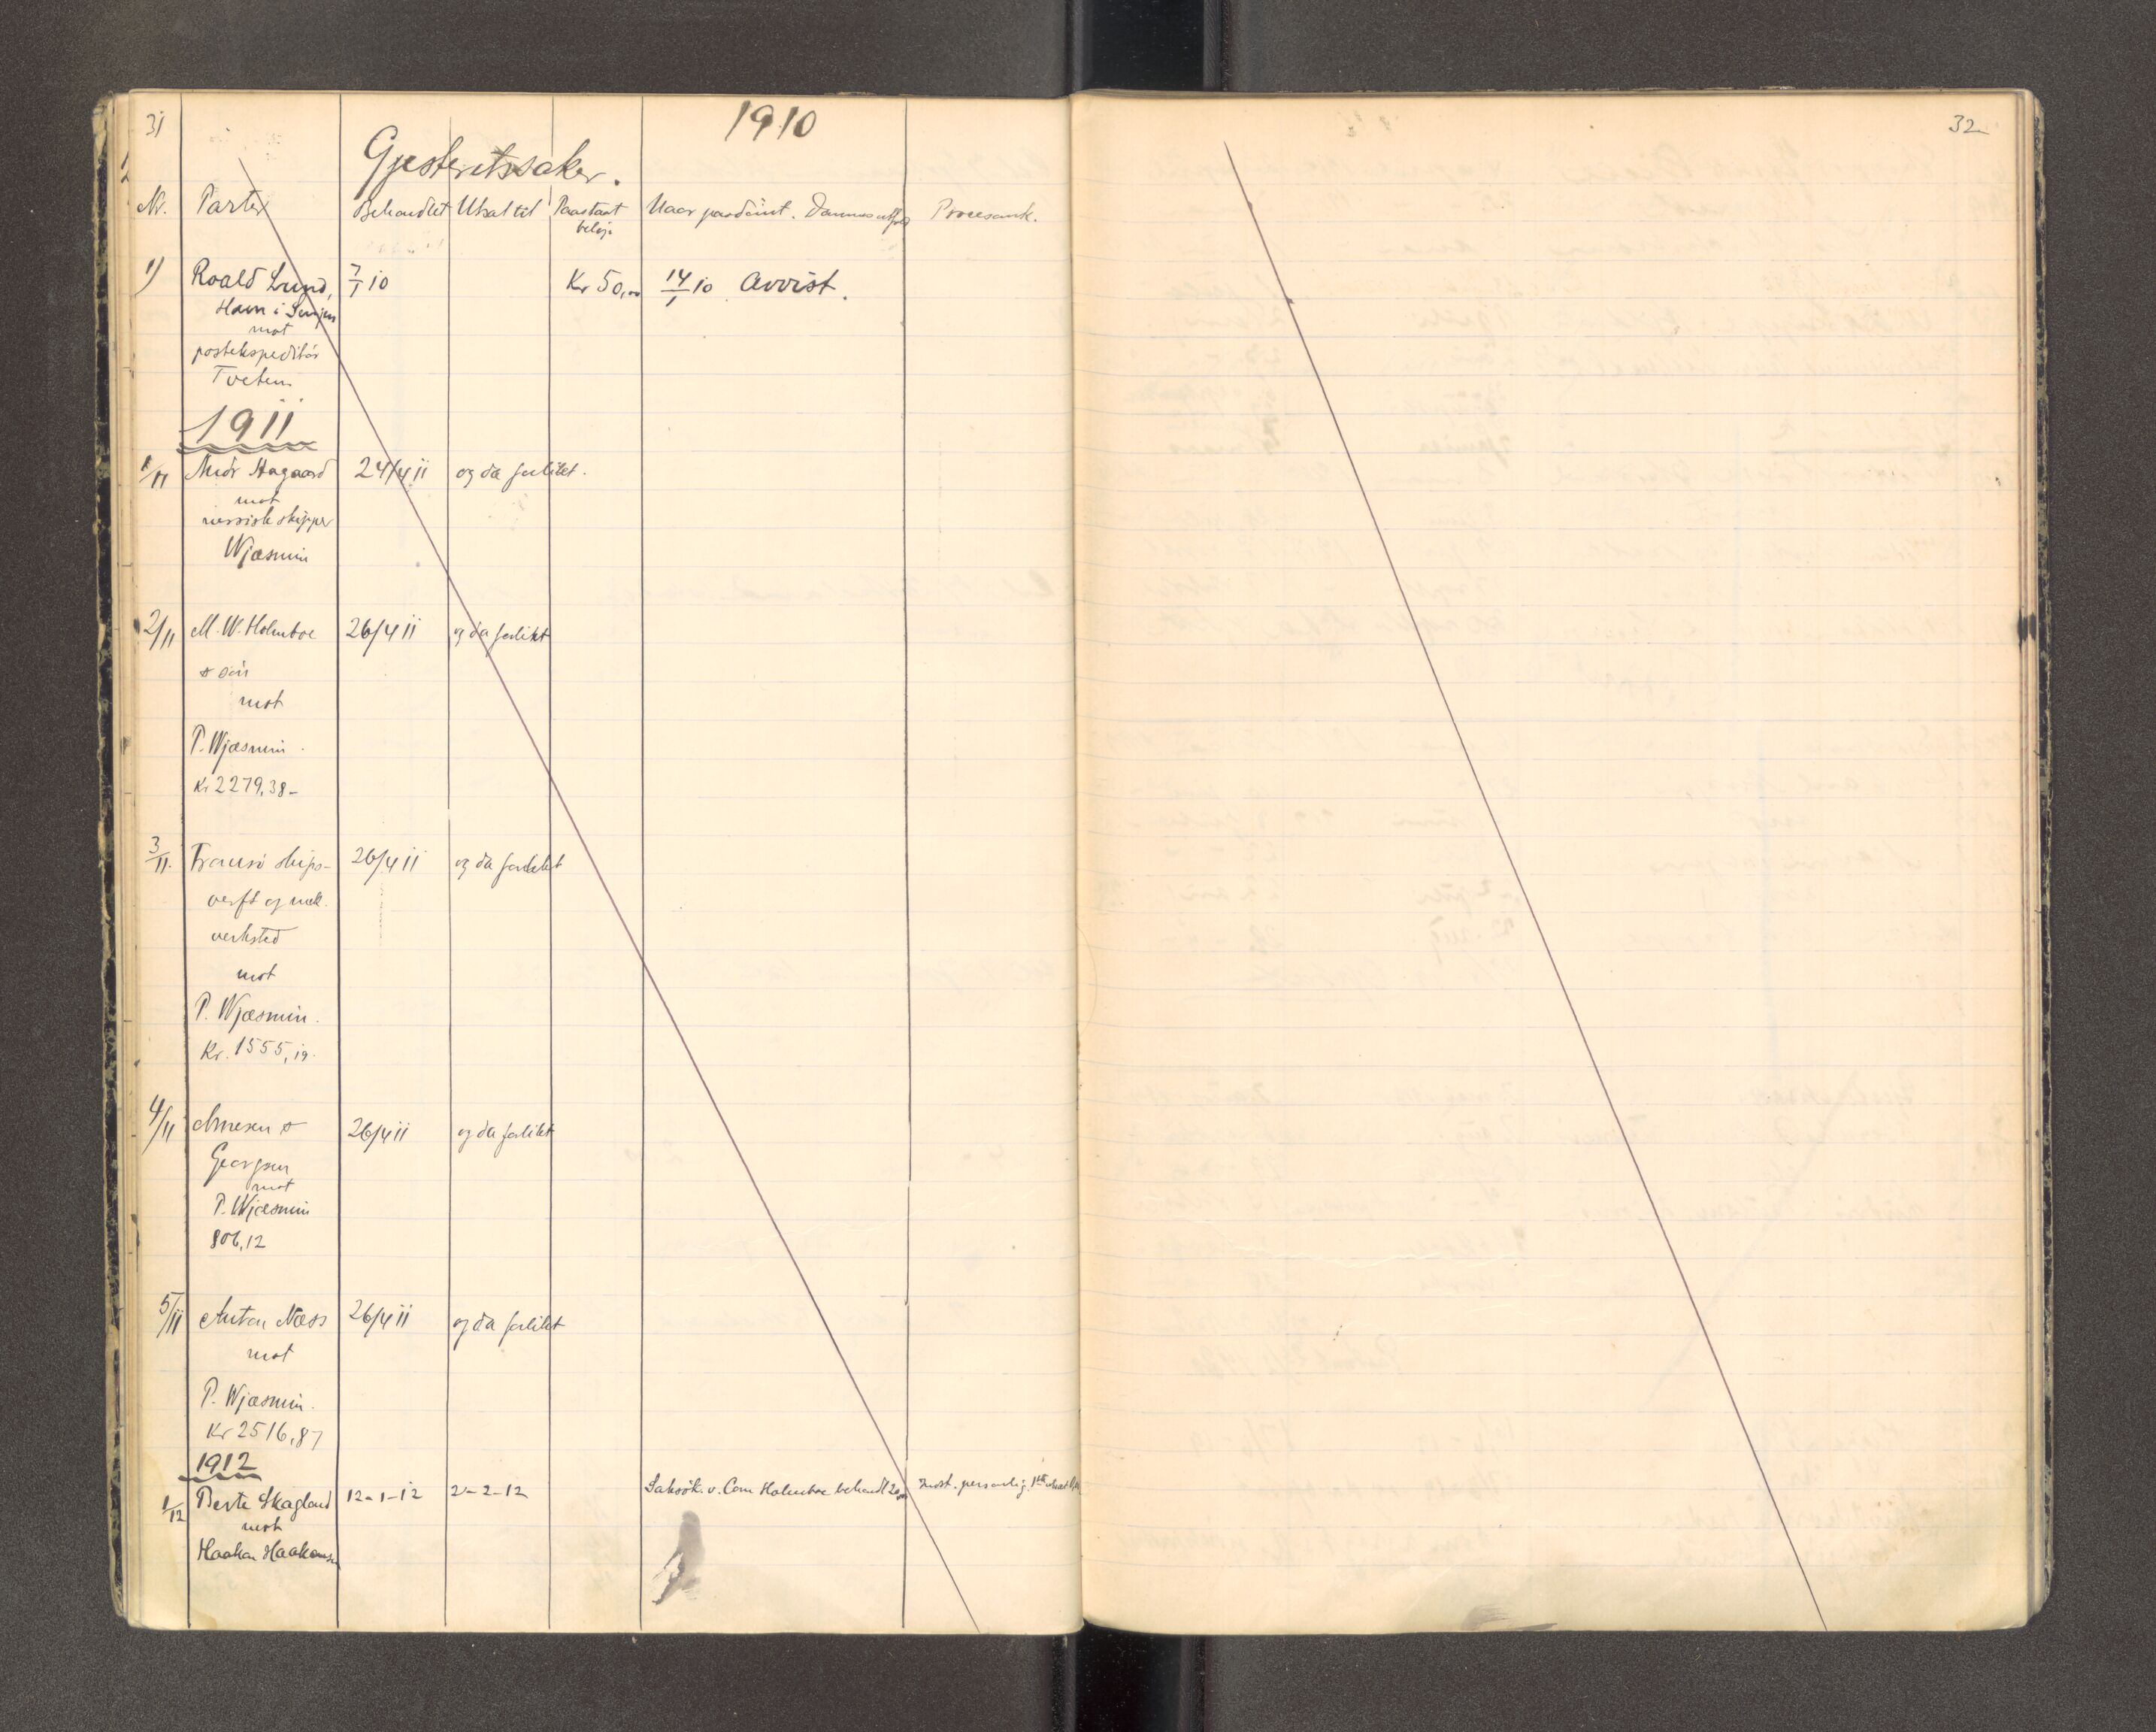 31
1910
Gjesteretssaker.
Nr. Parter Behandlet Utsat til Paastaat Naar paadömt. Domsutfald Procesomk.
beløp
1) Roald Lund, 7/1 10 Kr 50,00 14/1 10 Avvist.
Havn i Senjen
mot
postekspeditör
Tveten
1911
1/11 Andr Aagaard 24/4 11 og da forlikt.
mot
russisk skipper
Wjasmin
2/11 M. W. Holmboe 26/4 11 og da forlikt
& sön
mot
P. Wjasmin.
Kr 2279,38-
3/11. Tromsö skips- 26/4 11 og da forlikt
verft og mek.
verksted
mot
P. Wjasmin.
Kr. 1555,19.
4/11 Arnesen & 26/4 11 og da forlikt
Georgsen
mot
P. Wjasmin
806,12
5/11 Anton Næss 26/4 11 og da forlikt
mot
P. Wjasmin.
Kr 2516,87
1912
1/12 Berte Skagland 12-1-12 2-2-12 Saksök. v. Con Holmboe behandl Inst. personlig
mot
Haakon Haakonsen
32